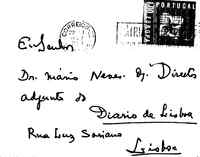 CORREIOS
PORTUGAL
Ex.Senhor
Dr. Mário Neves. Dg. Director
adjunto do
Diario de Lisboa
Rua Luz Soriano
Lisboa